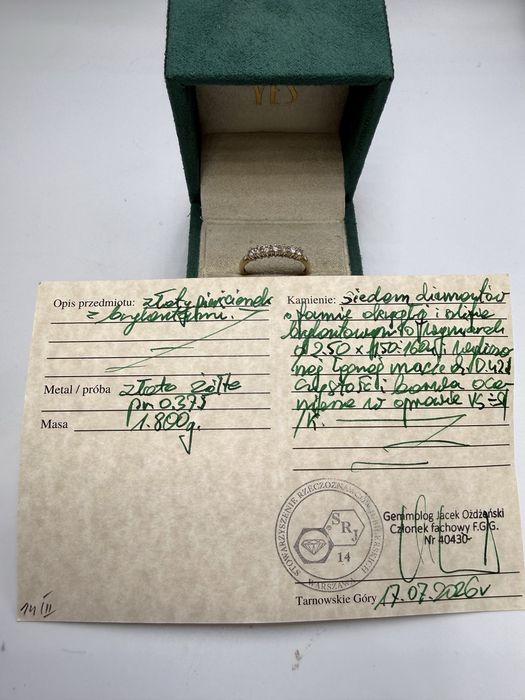 YES
Opis przedmiotu: złoty pierścionek
z brylantami.
Metal / próba złoto żółte
pr. 0.375
Masa 1.800g.
Kamienie: Siedem diamentów
o formie okrągłej i szlifie
brylantowym o
ø 2.50 x 1.50
łącznej masie
czystości i barwie oce-
w oprawie VS-SI
/K.
STOWARZYSZENIE RZECZOZNAWCÓW JUBILERSKICH
SRJ
14
WARSZAWA
Gemmolog Jacek Ożdżeński
Członek fachowy F.G.G.
Nr 40430-
Tarnowskie Góry 17.07.2026r
14/II